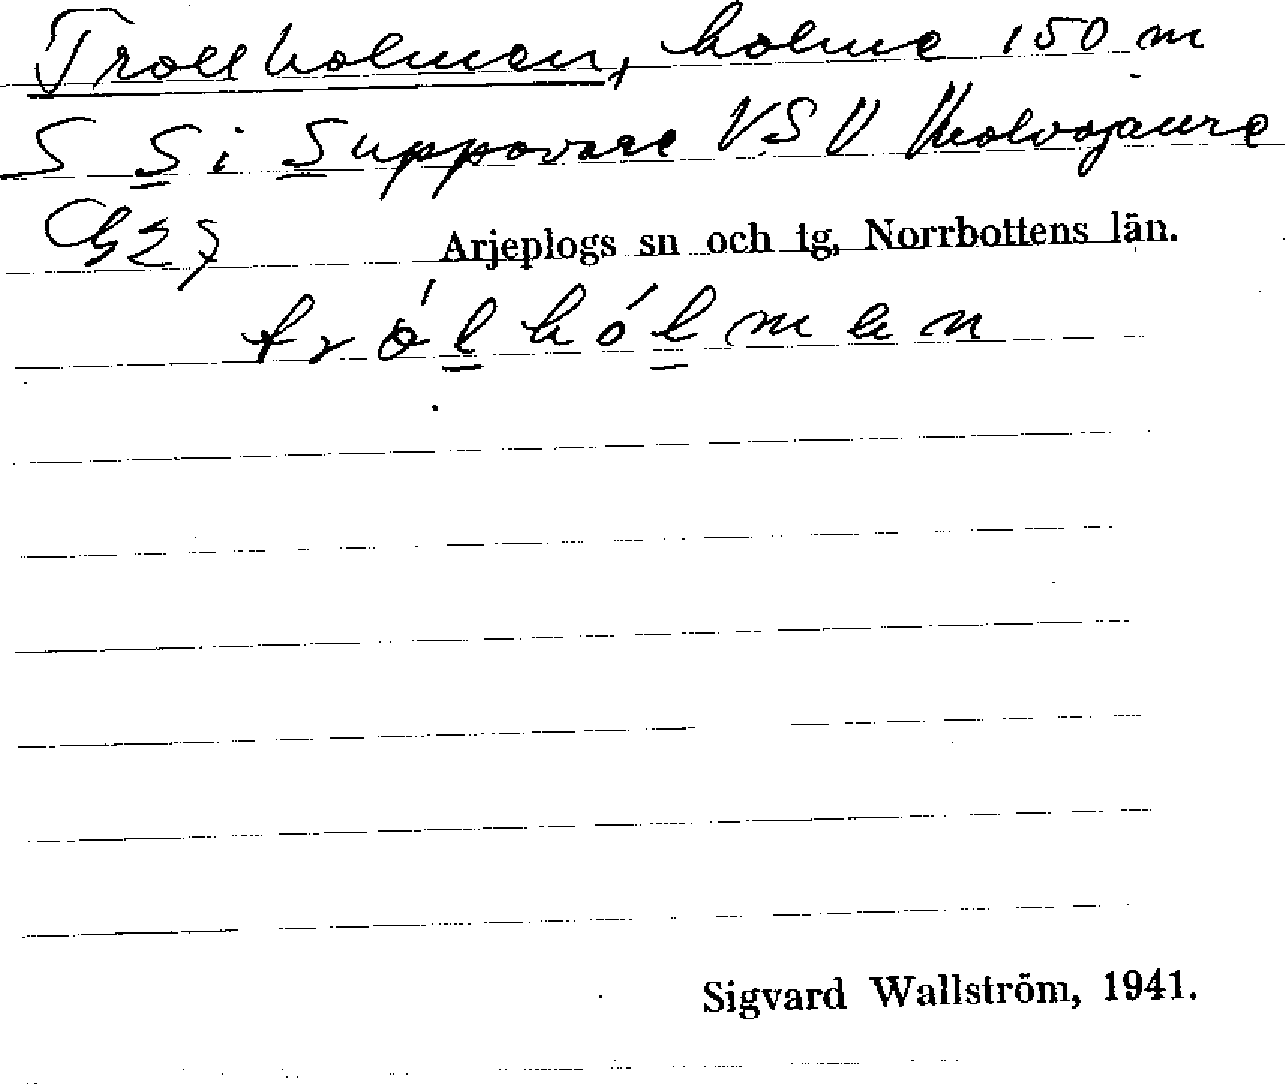 Trollholmen, holme 150 m
S S i Suppovare VSV Kvolvojaure
G27 Arjeplogs sn och tg, Norrbottens län.
tró̀lhólman
Sigvard Wallström, 1941.